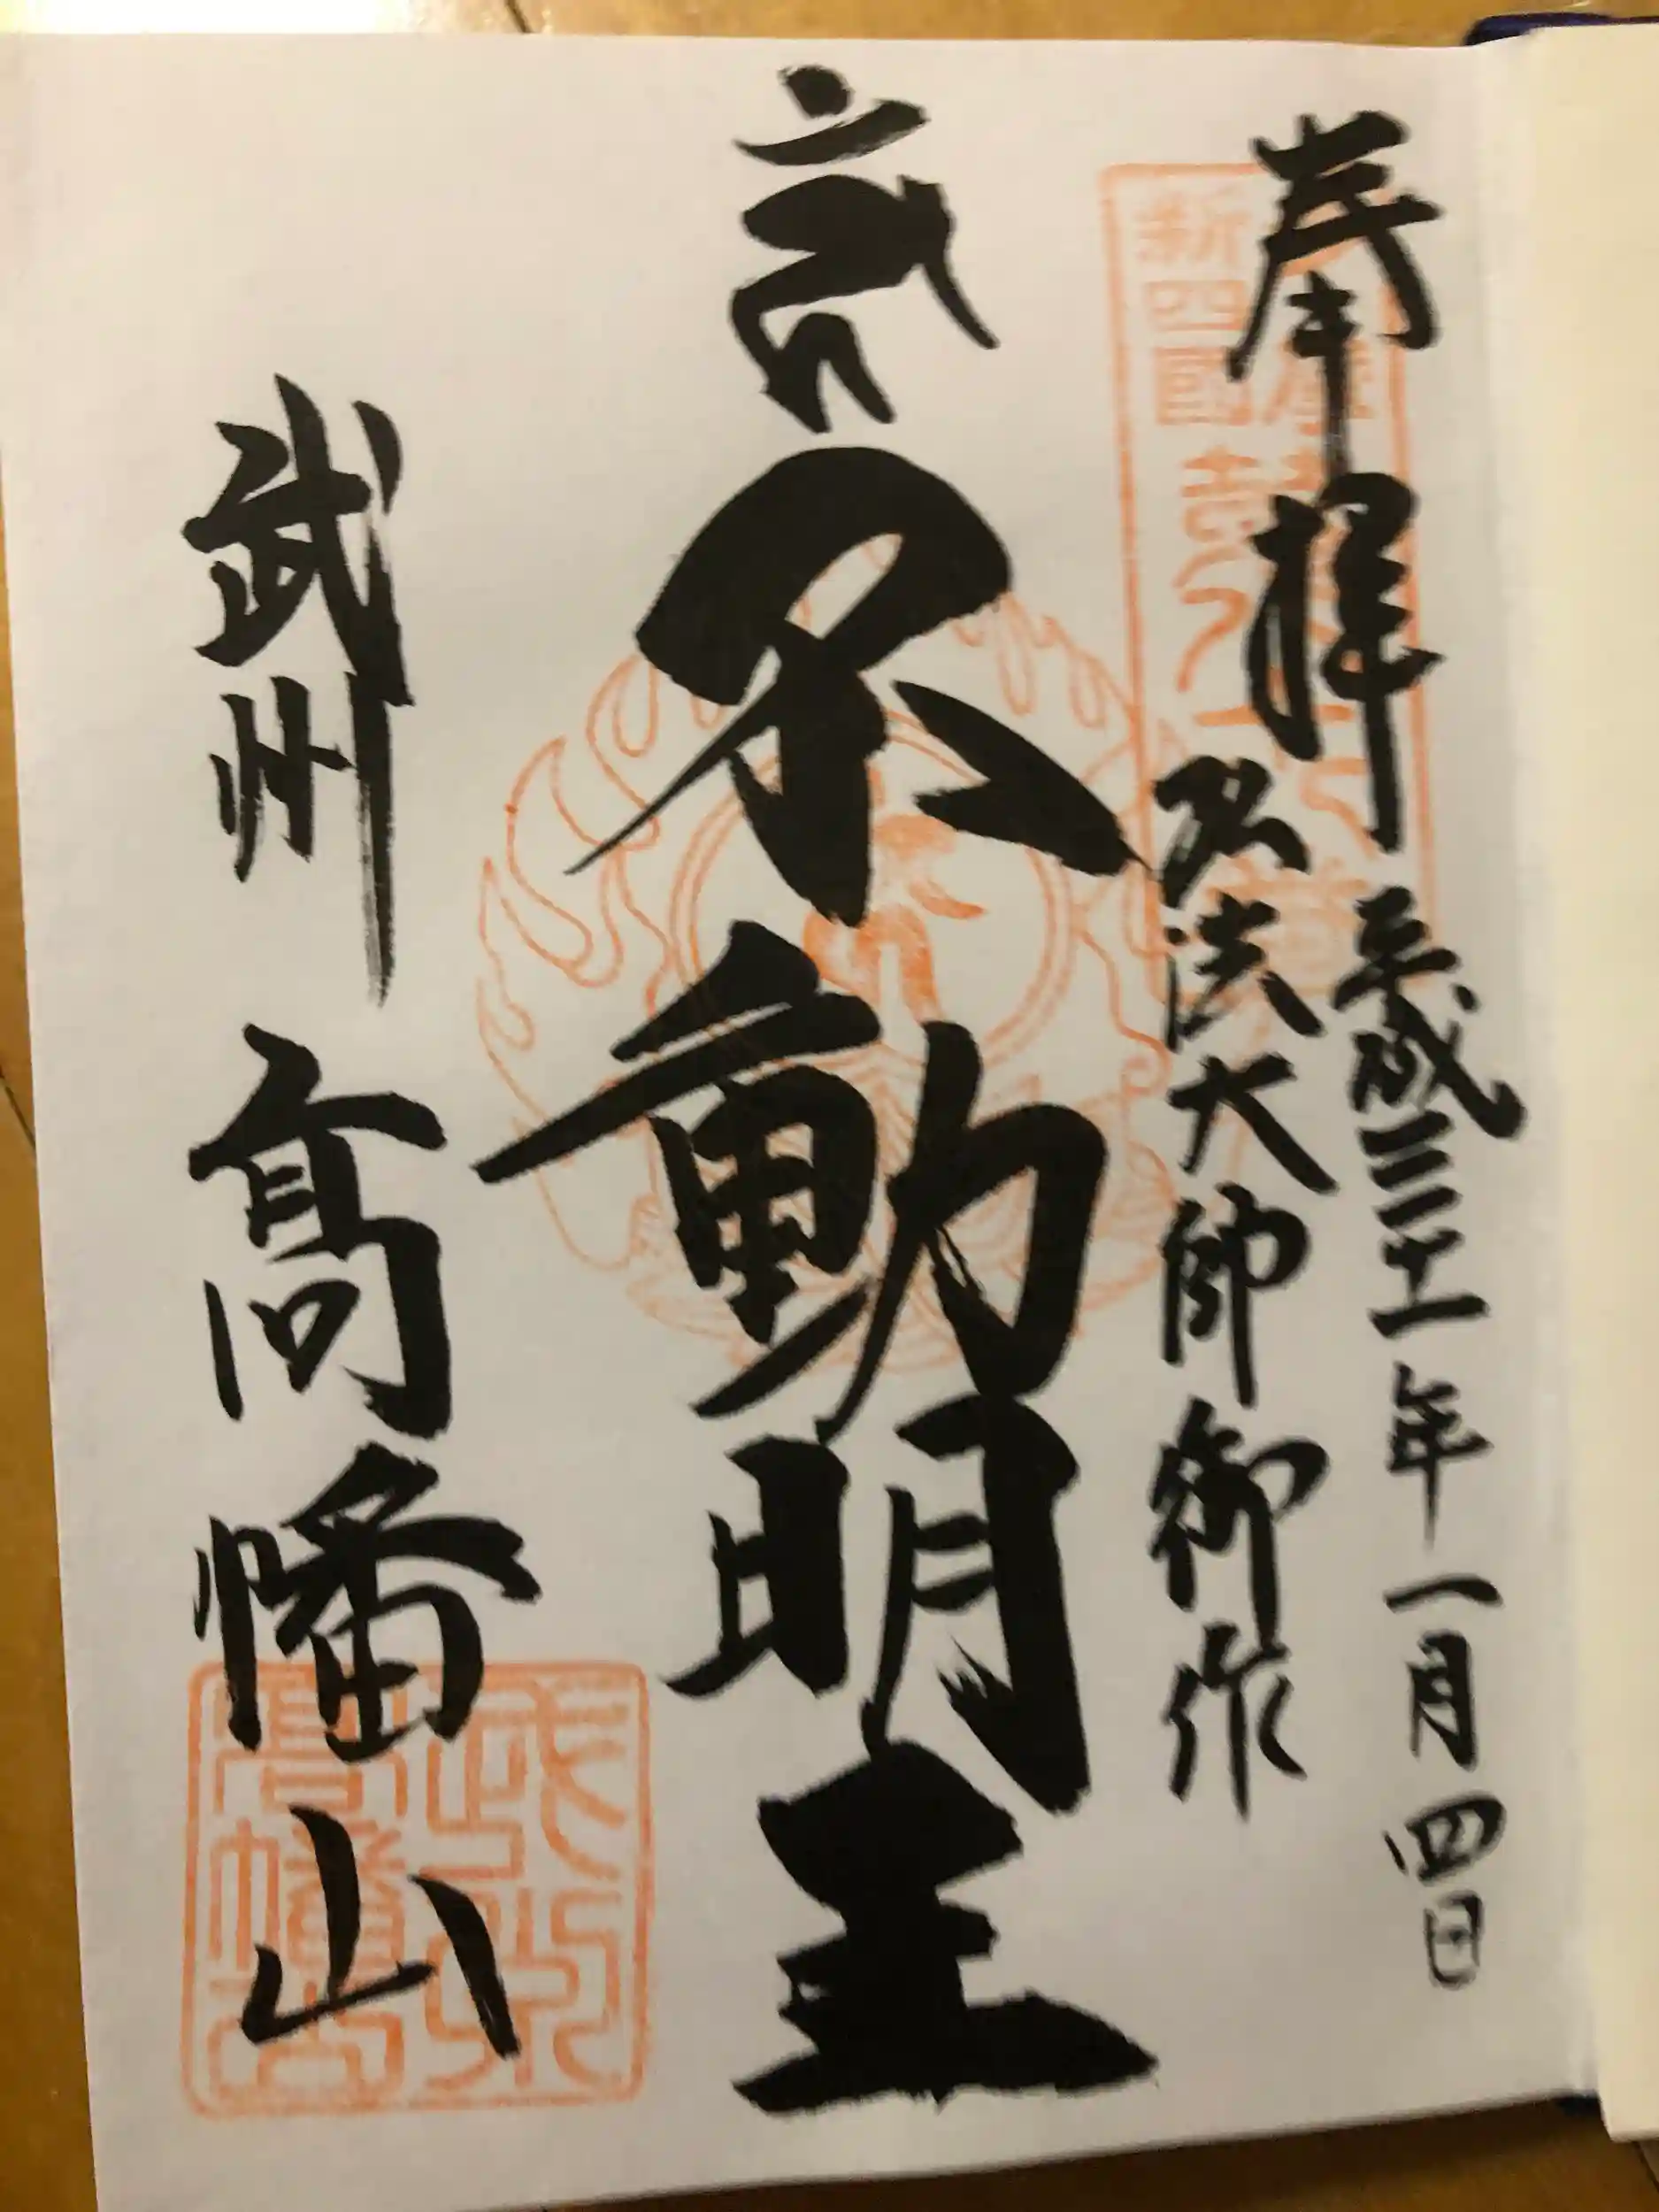 奉拝
平成三十一年一月四日
弘法大師御作
不動明王
武州
髙幡山
新四國